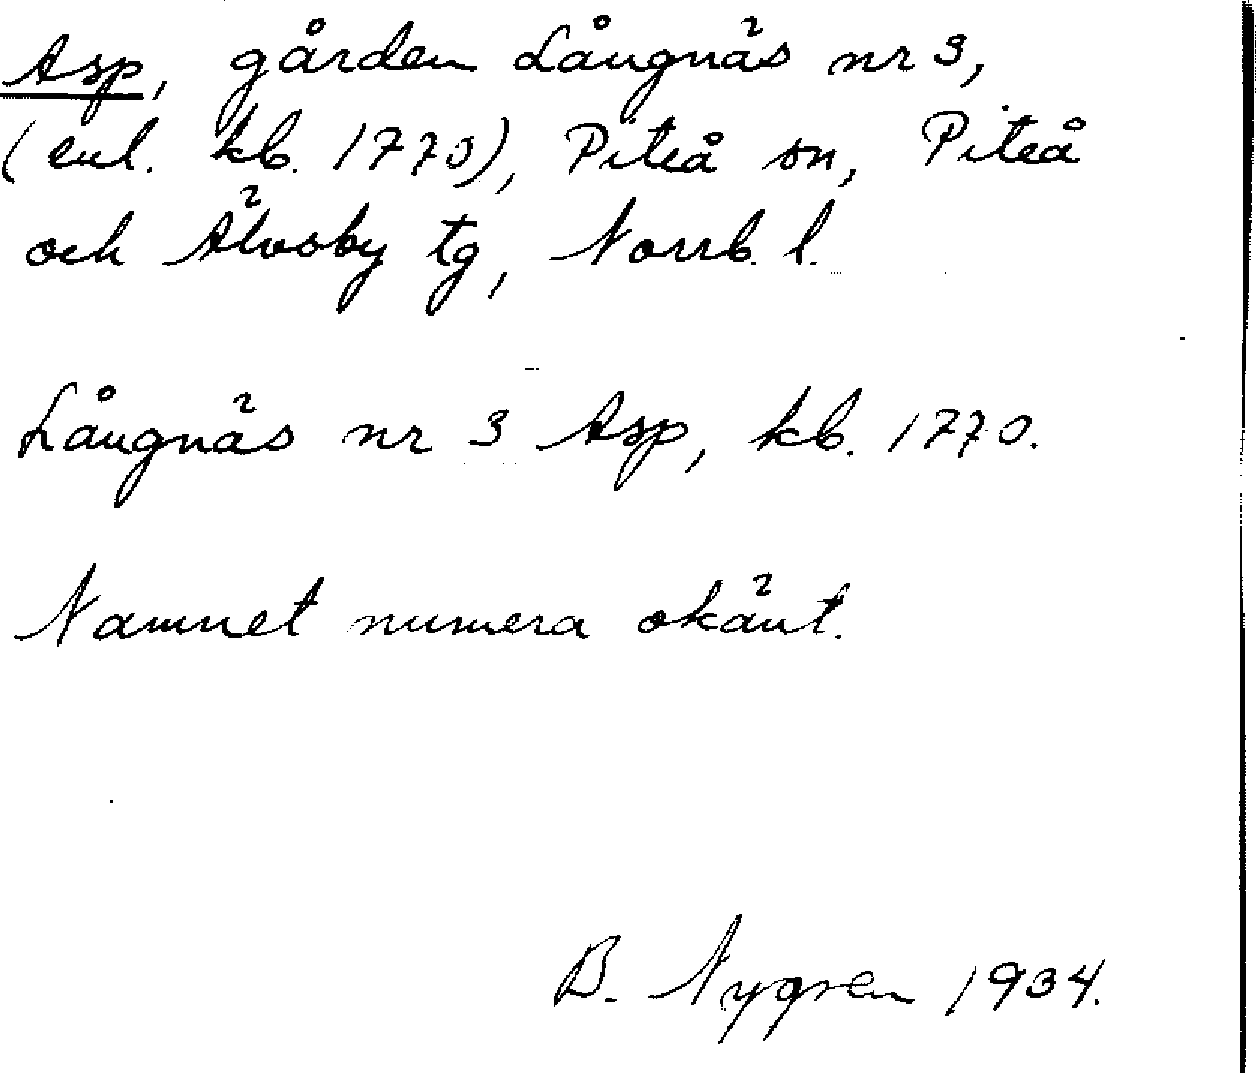 Asp, gården Långnäs nr 3,
(enl. kb. 1770), Piteå sn, Piteå
och Älvsby tg, Norrb. l.
Långnäs nr 3 Asp, kb. 1770.
Namnet numera okänt.
B. Nygren 1934.